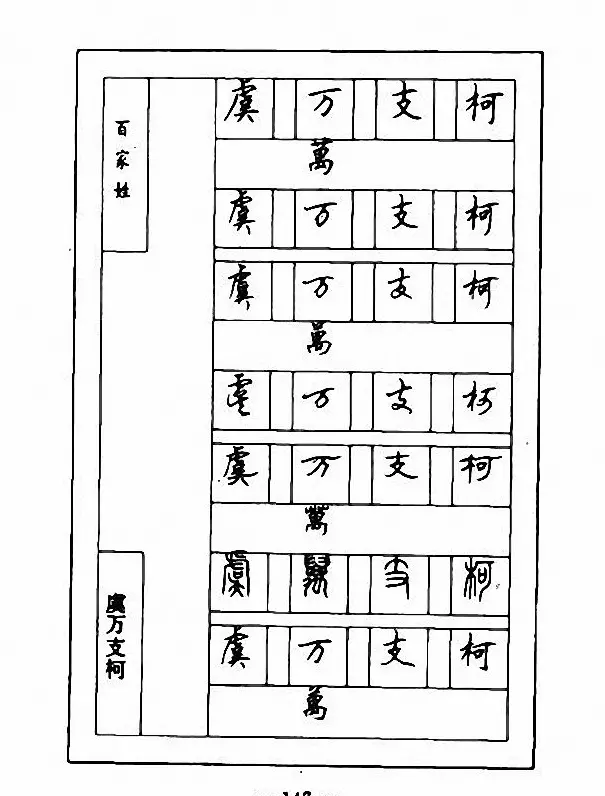 百家姓
虞万支柯
虞 万 支 柯
萬
虞 万 支 柯
虞 万 支 柯
萬
虞 万 支 柯
虞 万 支 柯
萬
虞 萬 支 柯
虞 万 支 柯
萬